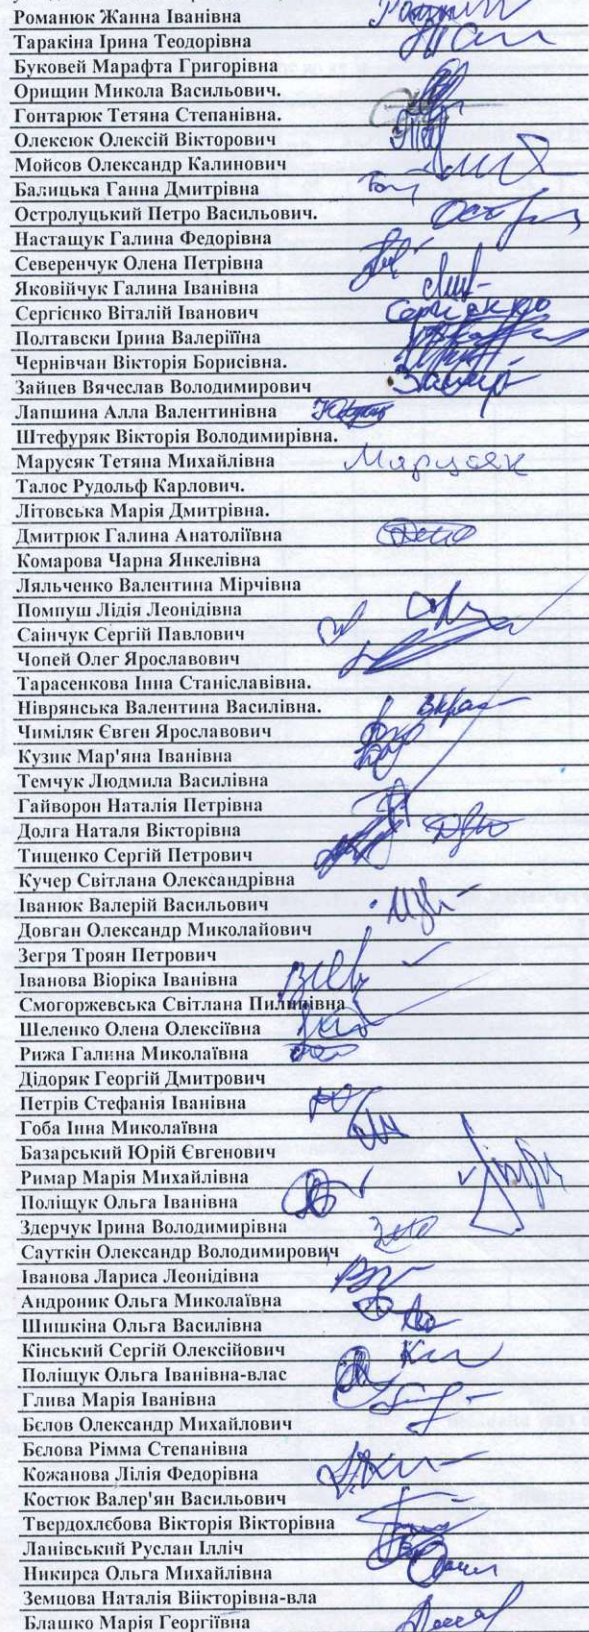 Романюк Жанна Іванівна
Таракіна Ірина Теодорівна
Буковей Марафта Григорівна
Орищин Микола Васильович.
Гонтарюк Тетяна Степанівна.
Олексюк Олексій Вікторович
Мойсов Олександр Калинович
Балицька Ганна Дмитрівна
Остролуцький Петро Васильович.
Настащук Галина Федорівна
Северенчук Олена Петрівна
Яковійчук Галина Іванівна
Сергієнко Віталій Іванович
Полтавски Ірина Валеріїіна
Чернівчан Вікторія Борисівна.
Зайцев Вячеслав Володимирович
Лапшина Алла Валентинівна
Штефуряк Вікторія Володимирівна.
Марусяк Тетяна Михайлівна Марусяк
Талос Рудольф Карлович.
Літовська Марія Дмитрівна.
Дмитрюк Галина Анатоліївна
Комарова Чарна Янкелівна
Ляльченко Валентина Мірчівна
Помпуш Лідія Леонідівна
Саінчук Сергій Павлович
Чопей Олег Ярославович
Тарасенкова Інна Станіславівна.
Ніврянська Валентина Василівна.
Чиміляк Євген Ярославович
Кузик Мар'яна Іванівна
Темчук Людмила Василівна
Гайворон Наталія Петрівна
Долга Наталя Вікторівна
Тищенко Сергій Петрович
Кучер Світлана Олександрівна
Іванюк Валерій Васильович
Довган Олександр Миколайович
Зегря Троян Петрович
Іванова Віоріка Іванівна
Смогоржевська Світлана Пилипівна
Шеленко Олена Олексіївна
Рижа Галина Миколаївна
Дідоряк Георгій Дмитрович
Петрів Стефанія Іванівна
Гоба Інна Миколаївна
Базарський Юрій Євгенович
Римар Марія Михайлівна
Поліщук Ольга Іванівна
Здерчук Ірина Володимирівна
Сауткін Олександр Володимирович
Іванова Лариса Леонідівна
Андроник Ольга Миколаївна
Шишкіна Ольга Василівна
Кінський Сергій Олексійович
Поліщук Ольга Іванівна-влас
Глива Марія Іванівна
Бєлов Олександр Михайлович
Бєлова Рімма Степанівна
Кожанова Лілія Федорівна
Костюк Валер'ян Васильович
Твердохлєбова Вікторія Вікторівна
Ланівський Руслан Ілліч
Никирса Ольга Михайлівна
Земцова Наталія Віікторівна-вла
Блашко Марія Георгіївна